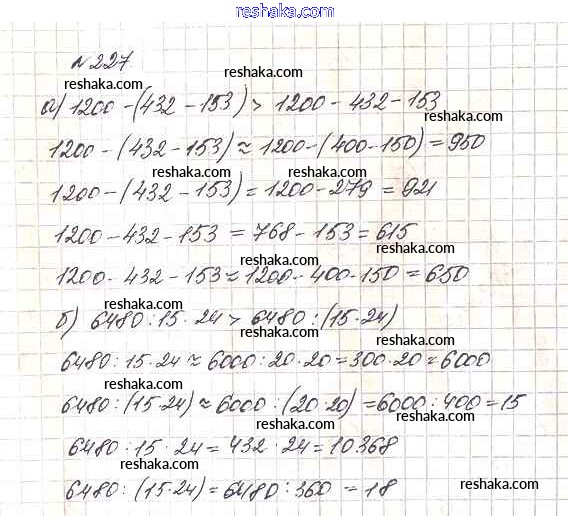 www.reshaka.com
№227
reshaka.com reshaka.com
а) 1200-(432-153) > 1200-432-153
reshaka.com
1200-(432-153)≈1200-(400-150)=950
reshaka.com reshaka.com
1200-(432-153)=1200-279=921
1200-432-153=768-153=615
reshaka.com reshaka.com
1200-432-153≈1200-400-150=650
reshaka.com
б) 6480:15·24 > 6480:(15·24)
reshaka.com
6480:15·24≈6000:20·20=300·20=6000
reshaka.com reshaka.com
6480:(15·24)≈6000:(20·20)=6000:400=15
reshaka.com
6480:15·24=432·24=10368
reshaka.com
6480:(15·24)=6480:360=18
reshaka.com
reshaka.com